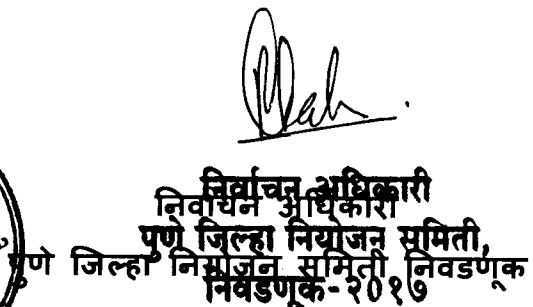 निर्वाचन अधिकारी
निर्वाचन अधिकारी
पुणे जिल्हा नियोजन समिती,
पुणे जिल्हा नियोजन समिती निवडणूक
निवडणूक-२०१७